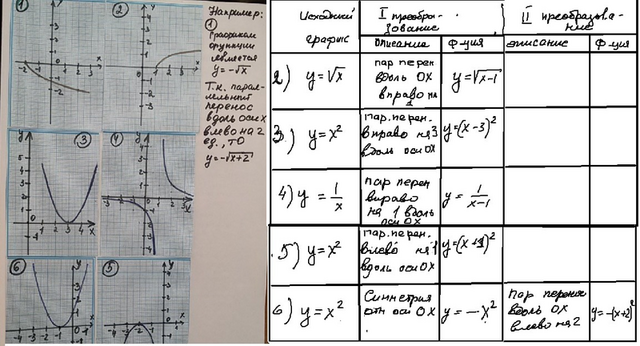 Например:
①
Графиком
функции
является
y = -√x
Т.к. парал-
лельный
перенос
вдоль оси x
влево на 2
ед., то
y = -√x+2
①
②
③
④
⑥
⑤
Исходный
график
I преобра-
зование
II преобразова-
ние
описание
ф-ция
описание
ф-ция
2) y = √x
пар перен
вдоль OX
вправо на
1
y = √x-1
3) y = x²
пар. перен.
вправо на 3
вдоль оси OX
y = (x-3)²
4) y = 1/x
пар перен
вправо
на 1 вдоль
оси OX
y = 1/x-1
5) y = x²
пар. перен.
влево на 1
вдоль оси OX
y = (x+1)²
6) y = x²
Симметрия
отн оси OX
y = -x²
Пар перенос
вдоль OX
влево на 2
y = -(x+2)²